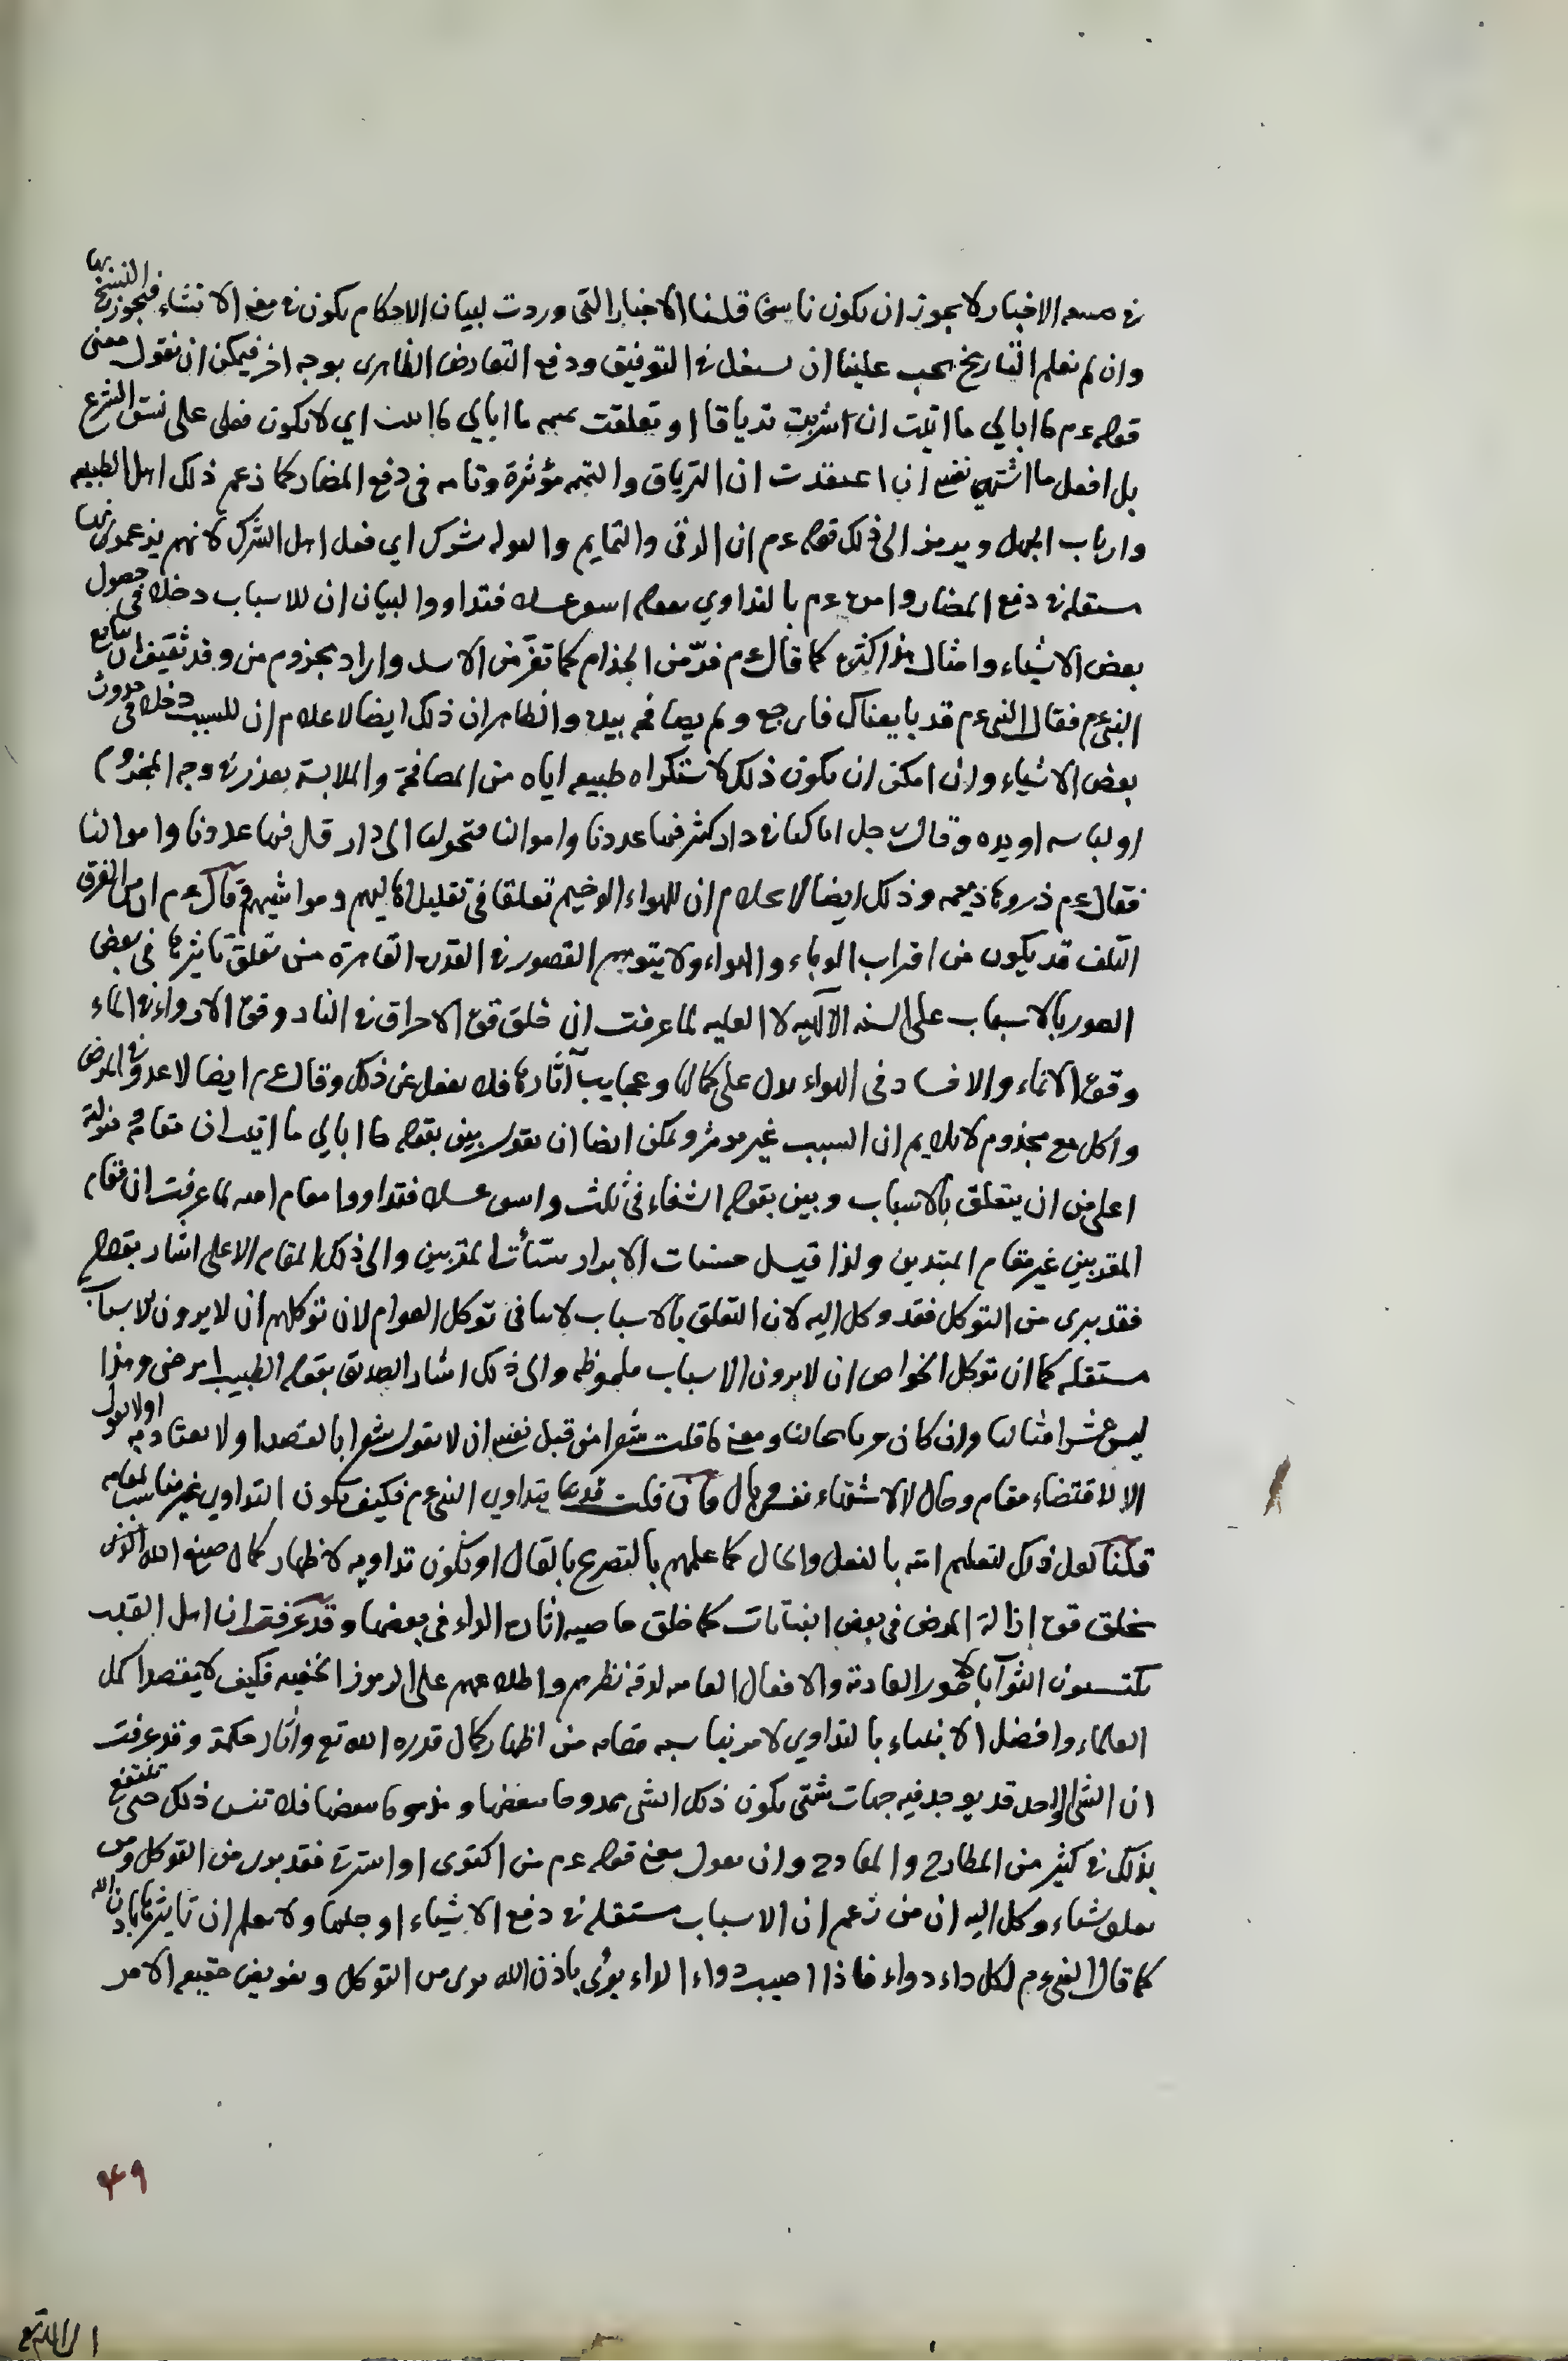 في الاخبار لا يجوز ان يكون ناسخا قلنا الاخبار التي وردت لبيان الاحكام يكون في معنى الانشاء فيجوز النسخ بها
وان لم نعلم التاريخ يجب علينا ان في التوفيق ودفع التعارض الظاهرى بوجه اخر فيمكن ان نقول معنى
قوله عم ما ابالي ما اتيت ان اشربت ترياقا او تعلقت تميمه ما ابالي ما اتيت اي لا يكون فعلى على نسق الشرع
بل افعل ما اشتهي نفسي ان اعتقدت ان الترياق والتميمه مؤثرة وتامه فى دفع المضار كما زعم ذلك اهل الطبيعه
وارباب الجهل ويرمز الى ذلك قوله عم ان الرقى والتمايم والتوله شرك اي فعل اهل الشرك لانهم يزعمون انها
مستقله في دفع المضار وامره عم بالتداوي بقوله فتداووا لبيان ان للاسباب دخلا فى حصول
بعض الاشياء وامثال هذا كثيره كما قال عم فرّ من الجذام كما تفرّ من الاسد واراد مجزوم من وفد ثقيف ان يبايع
النبي عم فقال النبي عم قد بايعناك فارجع ولم يصافحه بيده والظاهر ان ذلك ايضا لاعلام ان للسبب دخلا فى حدوث
بعض الاشياء وان امكن ان يكون ذلك لاستكراه طبيعه اياه من المصافحة والملابسة بعذر في وجه المجذوم
او لباسه او يده وقال رجل انا كنا في دار كثر فيها عددنا واموالنا فتحولنا الى دار قل فيها عددنا واموالنا
فقال عم ذروها ذميمه وذلك ايضا لاعلام ان للهواء الوخيم تعلقا فى تقليل اهاليهم ومواشيهم وقال عم ان من القرف
التلف قد يكون من اقراب الوباء والهواء ولا يتوهم القصور في القدره القاهرة من تعلق تاثيرها فى بعض
الصور بالاسباب على السنه الالهيه لا العليه لما عرفت ان خلق قوة الاحراق في النار وقوة الارواء في الماء
وقوة الانماء والافساد فى الهواء يدل على كمالها وعجايب آثارها فلا تغفل عن ذلك وقال عم ايضا لا عدوى في المرض
واكل مع مجذوم لاعلام ان السبب غير مؤثر ويمكن ايضا ان نقول بين بقوله ما ابالي ما اتيت ان مقامه ومنزلته
اعلى من ان يتعلق بالاسباب وبين بقوله الشفاء فى ثلث فتداووا مقام امته لما عرفت ان مقام
المقربين غير مقام المبتدين ولذا قيل حسنات الابرار سيئات المقربين والى ذلك المقام الاعلى اشار بقوله
فقد برى من التوكل فقد وكل اليه لان التعلق بالاسباب لا ينافى توكل العوام لان توكلهم ان لا يرون الاسباب
مستقله كما ان توكل الخواص ان لا يرون الاسباب ملحوظه والى ذلك اشار الصديق بقوله الطبيب امرضني وهذا
ليس عشر امثالها وان كان حريا بحالنا ومعنى ما قلت شعرا من قبل نفسي ان لا نقول شعرا بالقصد او لا نعتاد به او لا نقول
الا لاقتضاء مقام وحال لا لاشتهاء نفس وبال فان قلت قد تداوى النبي عم فكيف يكون التداوي غير مناسب لمقامه
قلنا لعل ذلك لتعليم امته بالفعل والحال كما علمهم بالتصريح بالقال او يكون تداويه لاظهار كمال صنيع الله الذى
خلق قوة ازالة المرض فى بعض النباتات كما خلق خاصيه اثارة الداء فى بعضها وقد عرفت ان اهل القلب
يكتسبون الثواب بالامور العاديه والافعال العاميه لدقة نظرهم واطلاعهم على الرموز الخفيه فكيف لا يقصد اكمل
العلماء وافضل الانبياء بالتداوي لامر يناسب مقامه من اظهار كمال قدره الله تع واثار حكمة وقد عرفت
ان الشى الواحد قد يوجد فيه جهات شتى يكون ذلك الشى ممدوحا ببعضها ومذموما ببعضها فلا تنس ذلك حتى تنتفع
بذلك في كثير من المطارح والمقادح وان نقول معنى قوله عم من اكتوى او استرقى فقد برى من التوكل ومن
تعلق شياء وكل اليه ان من زعم ان الاسباب مستقله في دفع الاشياء او جلبها ولا يعلم ان تاثيرها باذن الله
كما قال النبي عم لكل داء دواء فاذا اصيب دواء الداء برئ باذن الله برى من التوكل وتفويض حقيقه الامر
٤٩
الى الله تع